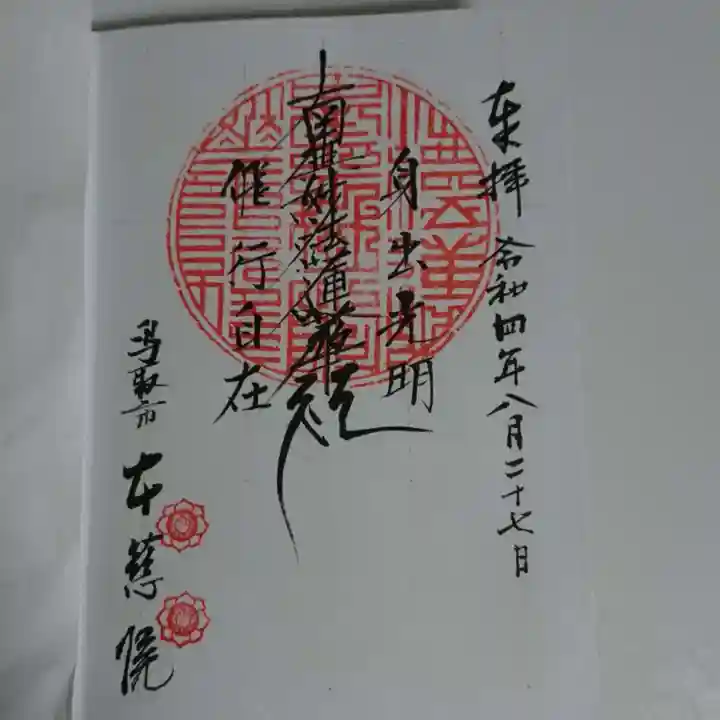 来拝 令和四年八月二十七日
身出光明
南無妙法蓮華経
飛行自在
鳥取市 本慈院